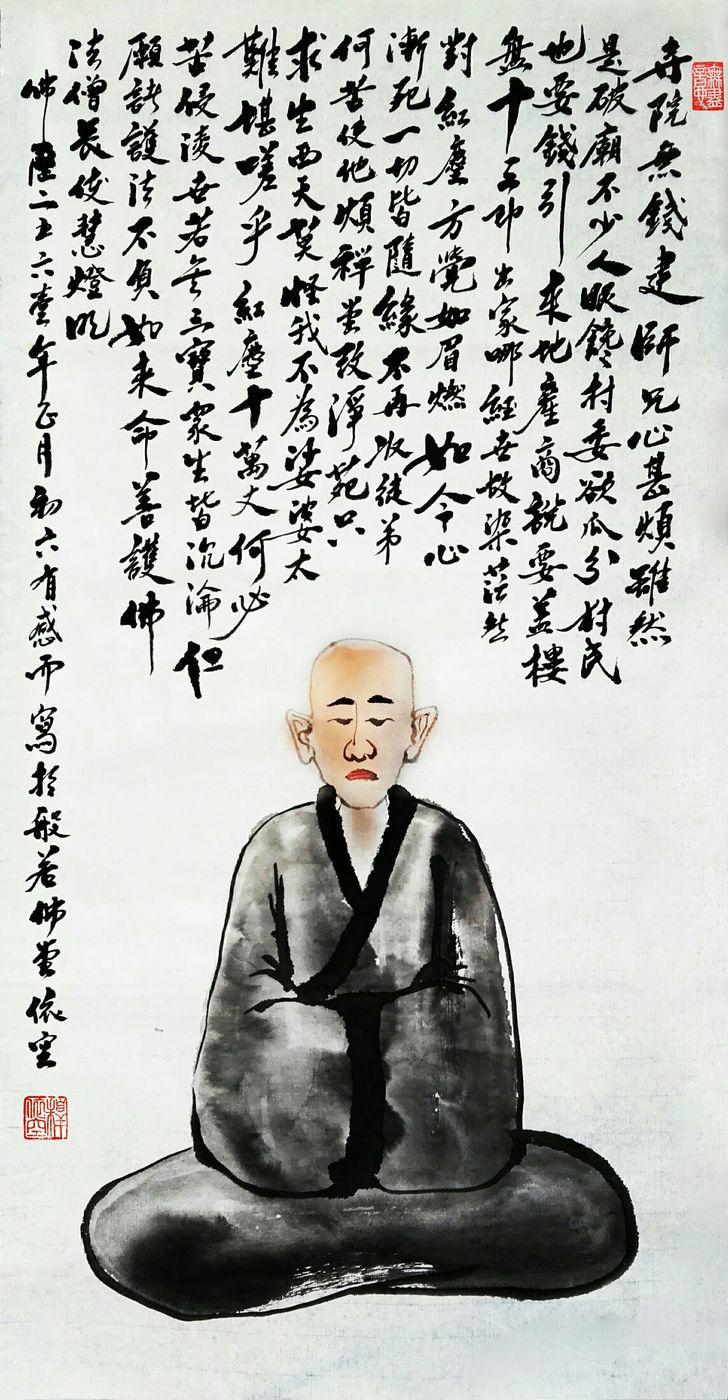 寺院無錢建師兄心甚煩雖然
是破廟不少人眼饞村委欲瓜分村民
也要錢引來地產商說要蓋樓
盤十五即出家哪經世故染茫然
對紅塵方覺如眉燃如今心
漸死一切皆隨緣不再收徒弟
何苦使他煩禪堂致淨苑只
求生西天莫怪我不為娑婆太
難堪嗟乎紅塵十萬丈何必
苦侵凌世若無三寶眾生皆沉淪但
願諸護法不負如來命善護佛
法僧長使慧燈明
佛曆二五六壹年正月初六有感而寫於般若佛堂依空